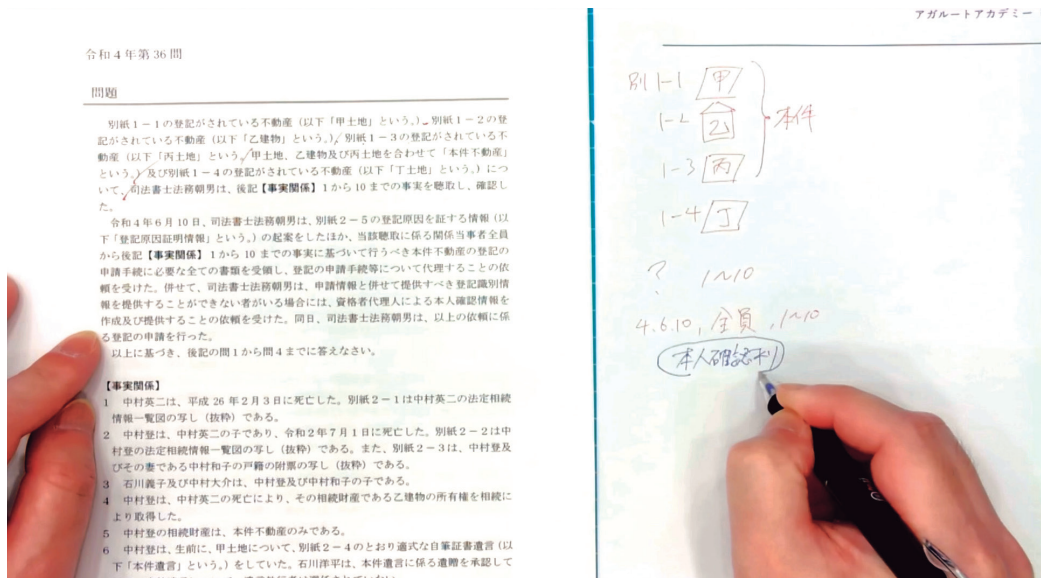 令和4年第36問
問題
別紙1-1の登記がされている不動産（以下「甲土地」という。）、別紙1-2の登
記がされている不動産（以下「乙建物」という。）、別紙1-3の登記がされている不
動産（以下「丙土地」という。甲土地、乙建物及び丙土地を合わせて「本件不動産」
という。）及び別紙1-4の登記がされている不動産（以下「丁土地」という。）につ
いて、司法書士法務朝男は、後記【事実関係】1から10までの事実を聴取し、確認し
た。
令和4年6月10日、司法書士法務朝男は、別紙2-5の登記原因を証する情報（以
下「登記原因証明情報」という。）の起案をしたほか、当該聴取に係る関係当事者全員
から後記【事実関係】1から10までの事実に基づいて行うべき本件不動産の登記の
申請手続に必要な全ての書類を受領し、登記の申請手続等について代理することの依
頼を受けた。併せて、司法書士法務朝男は、申請情報と併せて提供すべき登記識別情
報を提供することができない者がいる場合には、資格者代理人による本人確認情報を
作成及び提供することの依頼を受けた。同日、司法書士法務朝男は、以上の依頼に係
る登記の申請を行った。
以上に基づき、後記の問1から問4までに答えなさい。
【事実関係】
1 中村英二は、平成26年2月3日に死亡した。別紙2-1は中村英二の法定相続
情報一覧図の写し（抜粋）である。
2 中村登は、中村英二の子であり、令和2年7月1日に死亡した。別紙2-2は中
村登の法定相続情報一覧図の写し（抜粋）である。また、別紙2-3は、中村登及
びその妻である中村和子の戸籍の附票の写し（抜粋）である。
3 石川義子及び中村大介は、中村登及び中村和子の子である。
4 中村登は、中村英二の死亡により、その相続財産である乙建物の所有権を相続に
より取得した。
5 中村登の相続財産は、本件不動産のみである。
6 中村登は、生前に、甲土地について、別紙2-4のとおり適式な自筆証書遺言（以
下「本件遺言」という。）をしていた。石川洋平は、本件遺言に係る遺贈を承認して
アガルートアカデミー
別1-1 甲
1-2 乙
本件
1-3 丙
1-4 丁
? 1~10
4.6.10, 全員, 1~10
本人確認